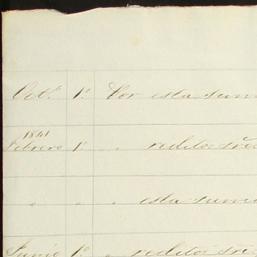 Oct.e 1.o Por esta sum
1841
Febrero 1.o " reditos
" " esta suma
Junio 1.o " reditos